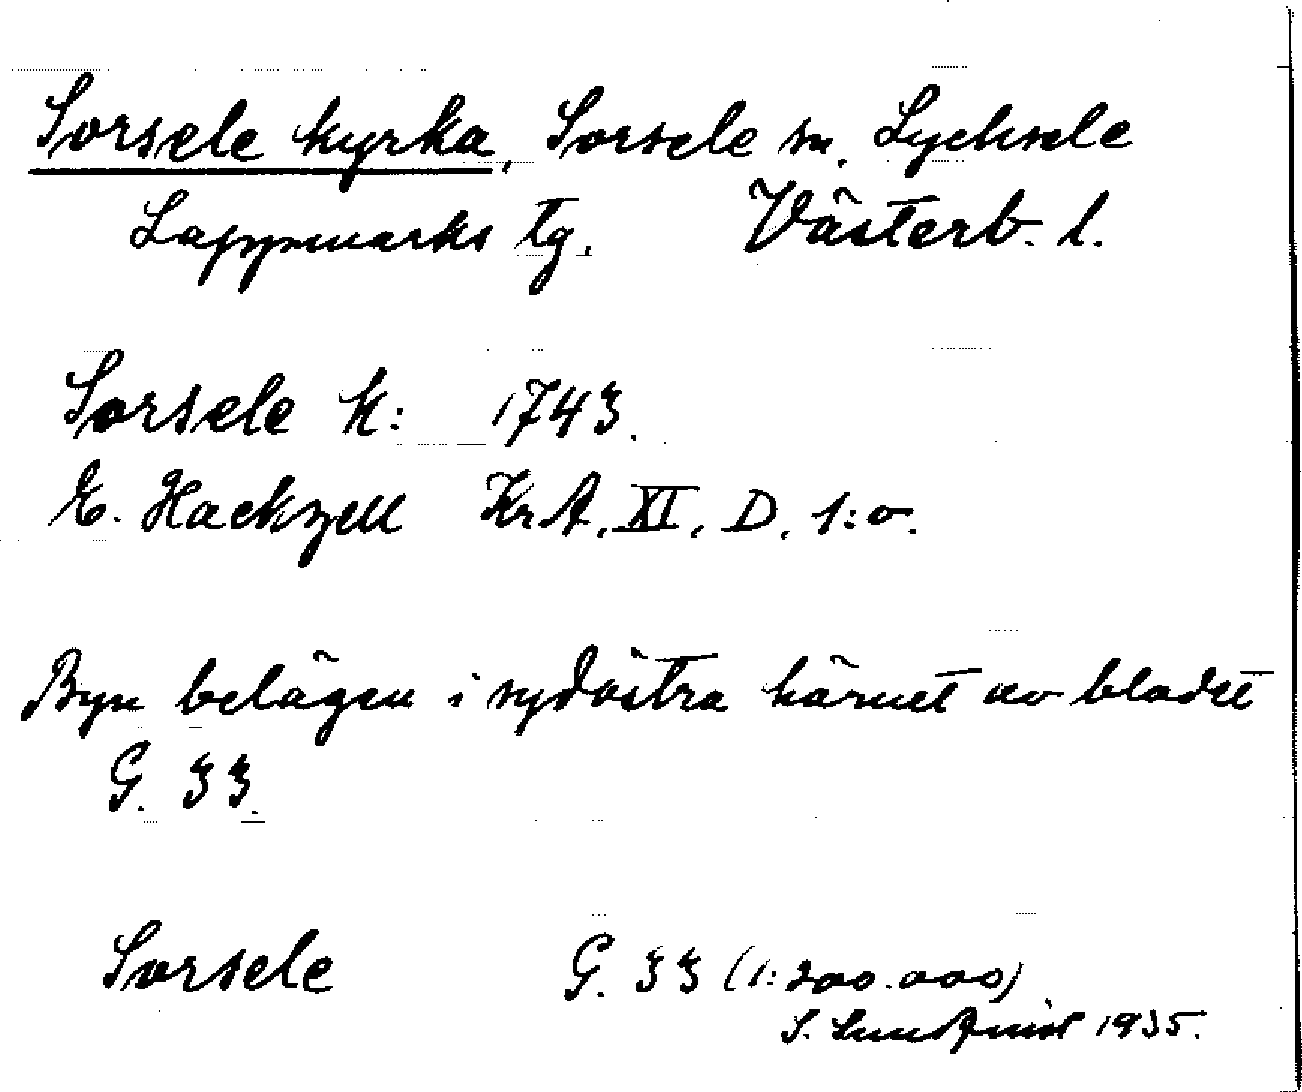 Sorsele kyrka, Sorsele sn. Lycksele
Lappmarks tg. Västerb. l.
Sorsele k: 1743.
E. Hackzell Kr A. XI. D. 1:o.
Byn belägen i sydöstra hörnet av bladet
G. 33.
Sorsele G. 33 (1:200.000)
S. Lundquist 1935.